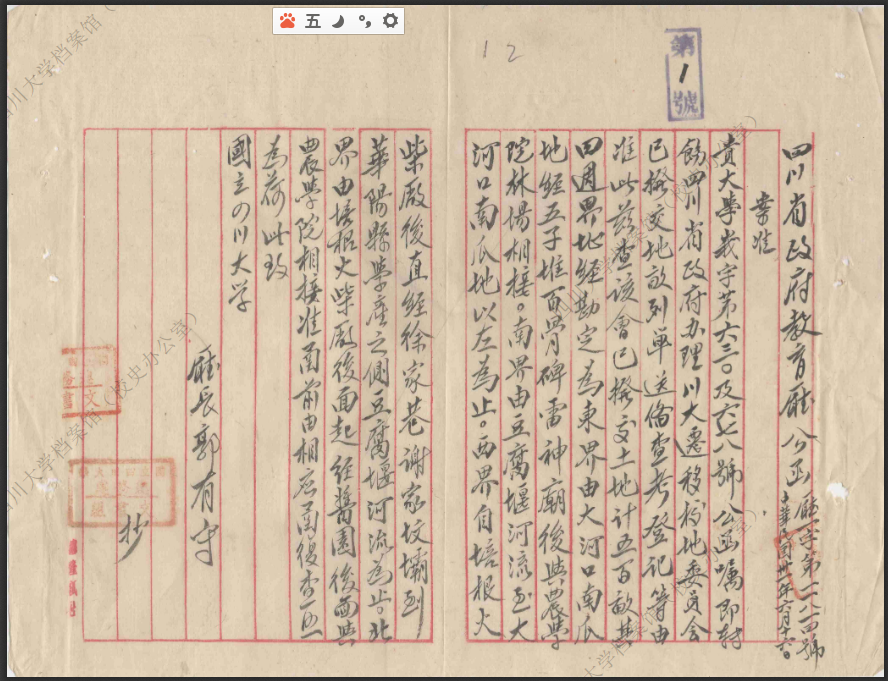 五
12
第1號
四川省政府教育廳公函 廳字第一八一四號
中華民國卅一年六月十六日
案准
貴大學峩字第六三〇及六七八號公函囑即轉
飭四川省政府办理川大遷移校地委員會
已撥交地畝列單送備查考登記等由
准此茲查該會已撥交土地計五百畝其
田週界址經勘定為東界由大河口南瓜
地經五子堆百骨碑雷神廟後與農學
院林場相接。南界由豆腐堰河流至大
河口南瓜地以左為止。西界自培根火
柴廠後直經徐家巷謝家坟壩到
華陽縣學產之側豆腐堰河流為止。北
界由培根火柴廠後面起經醬園後面與
農學院相接准函前由相应函復查照
為荷此致
國立四川大學
廳長郭有守
抄
四川大学档案馆（校史办公室）